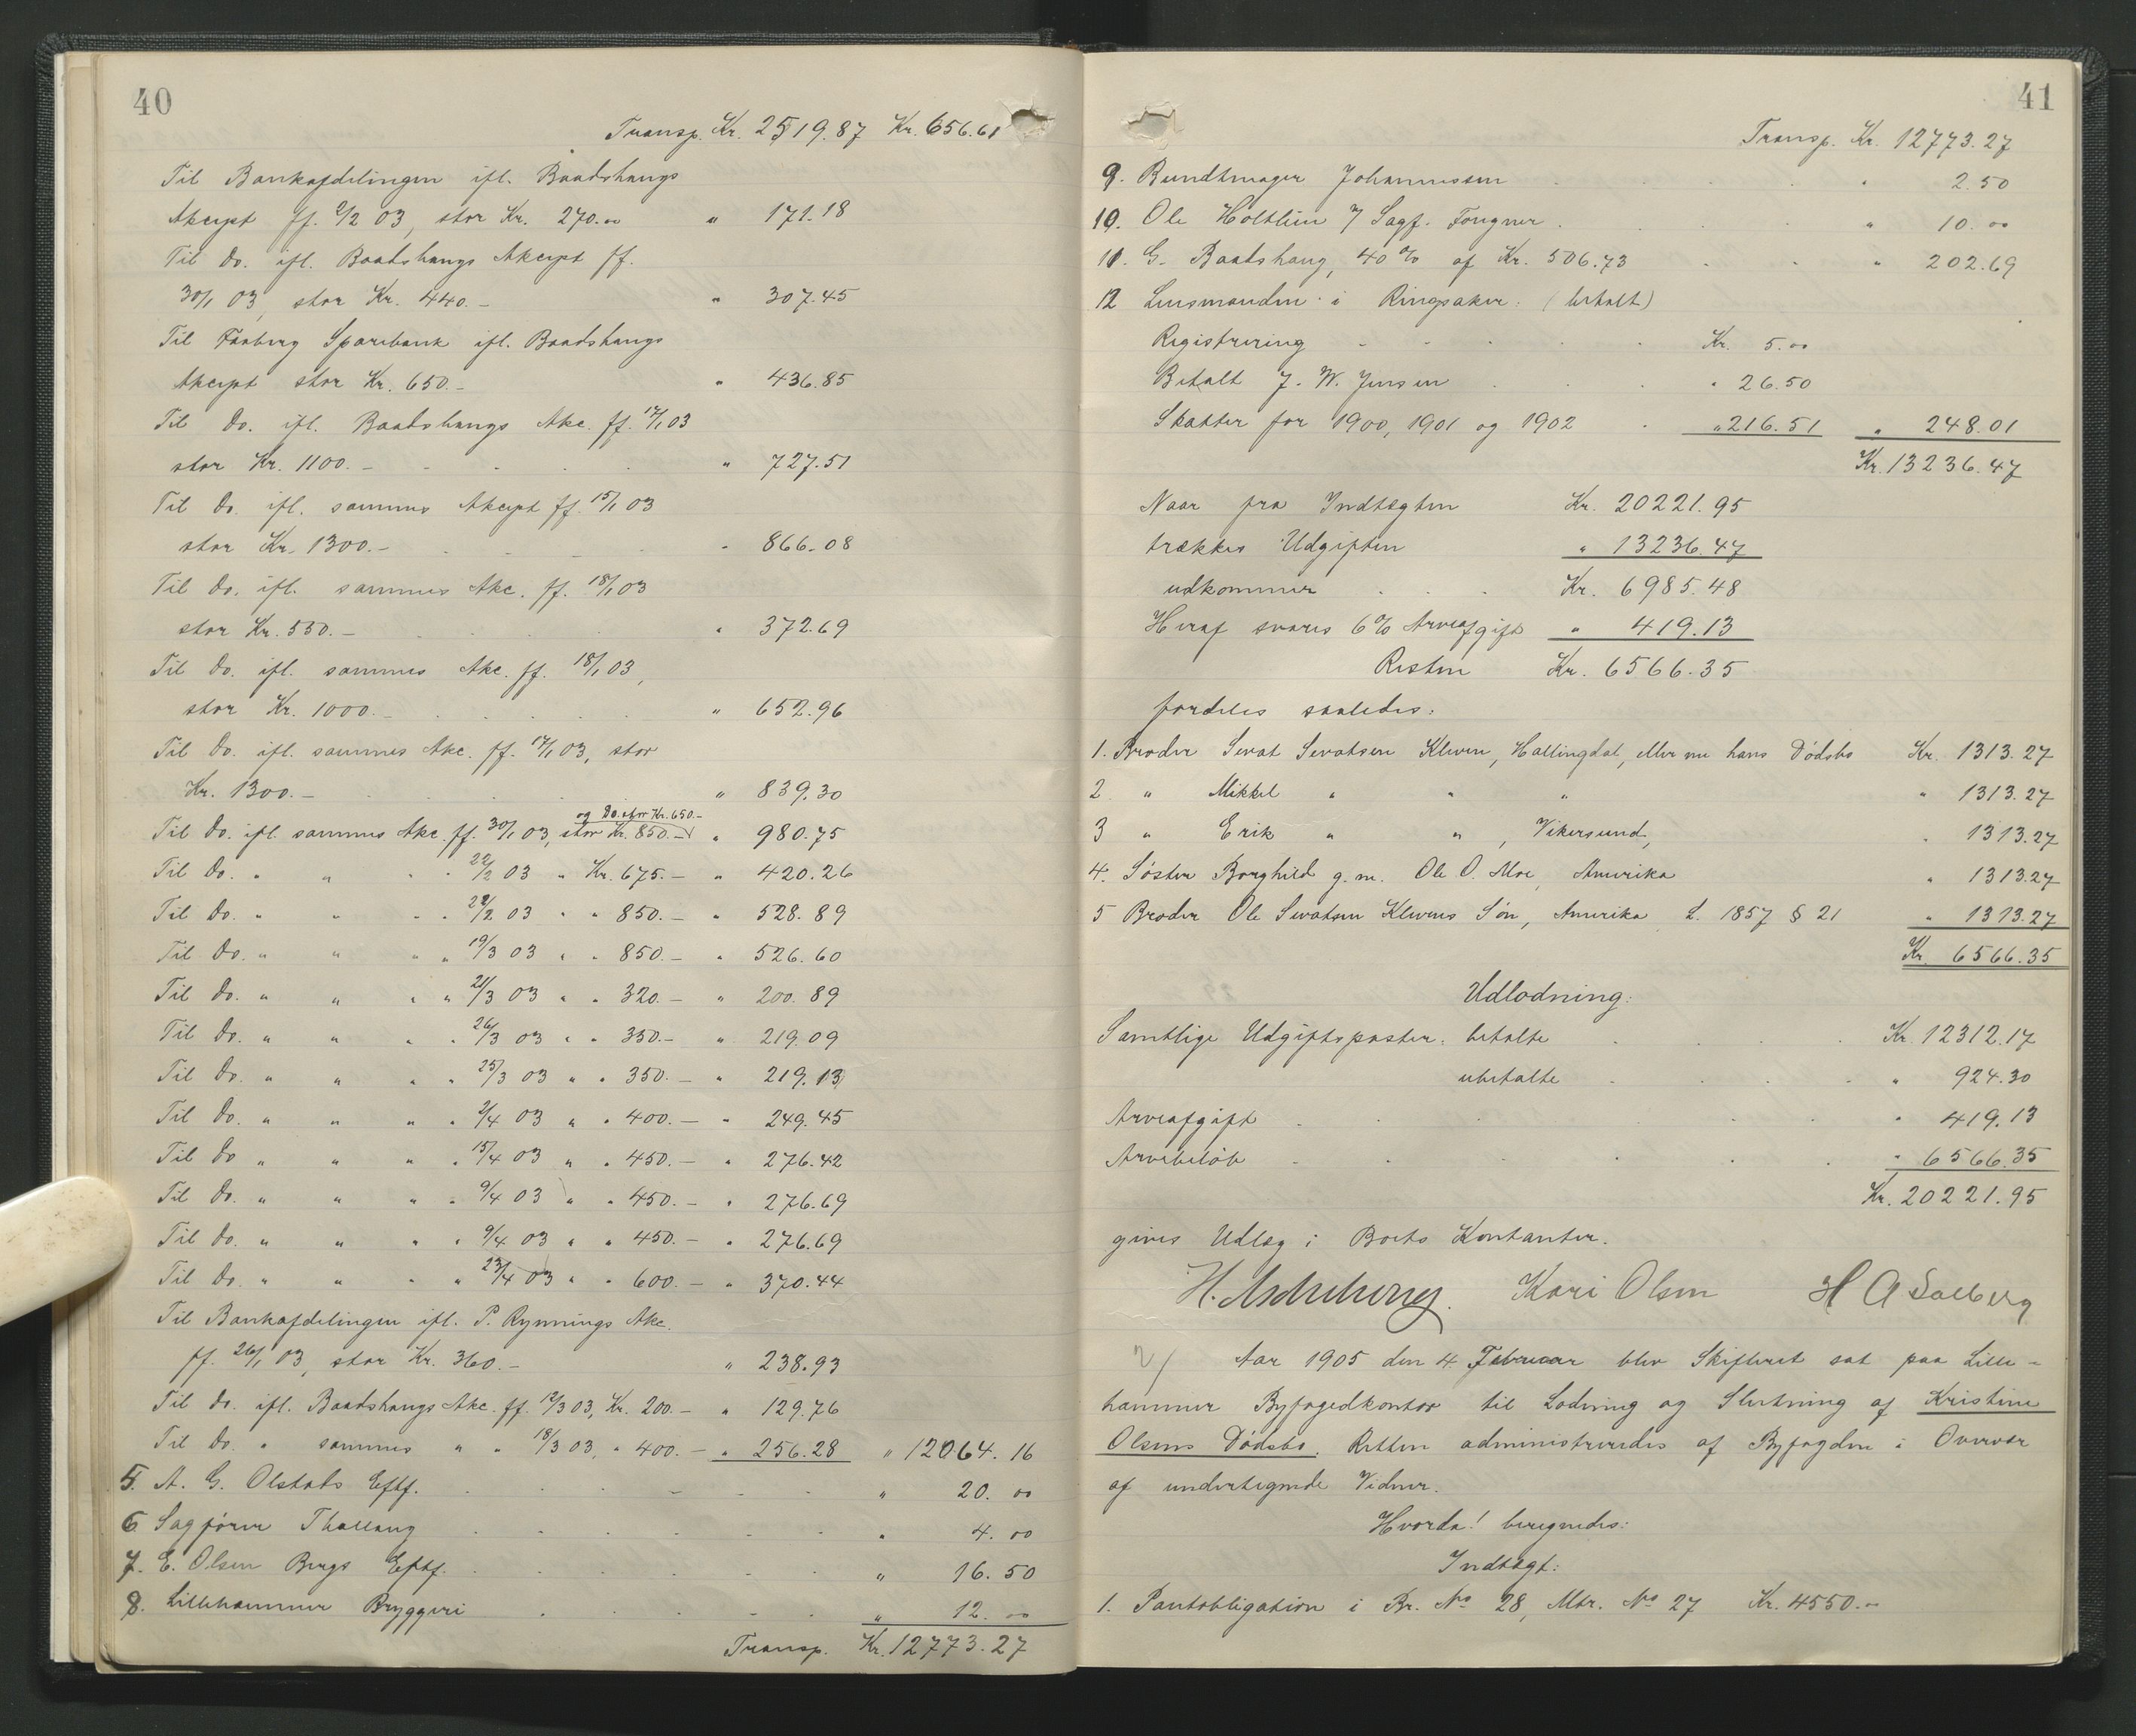 40
Transp. Kr. 2519.87 Kr. 656.61
Til Bankafdelingen ifl. Baadshaugs
Akcept ff. 2/2 03, stor Kr. 270.00 " 171.18
Til Do. ifl. Baadshaugs Akcept ff.
30/1 03, stor Kr. 440.- " 307.45
Til Faaberg Sparebank ifl. Baadshaugs
Akcept stor Kr. 650.- " 436.85
Til Do. ifl. Baadshaugs Akc. ff. 17/1 03
stor Kr. 1100.- " 727.51
Til Do. ifl. sammes Akcept ff. 15/1 03
stor Kr. 1300.- " 866.08
Til Do. ifl. sammes Akc. ff. 18/1 03
stor Kr. 550.- " 372.69
Til Do. ifl. sammes Akc. ff. 18/1 03,
stor Kr. 1000.- " 652.96
Til Do. ifl. sammes Akc. ff. 17/1 03, stor
Kr. 1300.- " 839.30
og Do. stor Kr. 650.-
Til Do. ifl. sammes Akc. ff. 30/1 03, stor Kr. 850.- " 980.75
Til Do. " " " 22/2 03 " Kr. 675.- " 420.26
Til Do. " " " " 28/2 03 " " 850.- " 528.89
Til Do. " " " " 19/3 03 " " 850.- " 526.60
Til Do. " " " " 21/3 03 " " 320.- " 200.89
Til Do. " " " " 26/3 03 " " 350.- " 219.09
Til Do. " " " " 25/3 03 " " 350.- " 219.13
Til Do. " " " " 2/4 03 " " 400.- " 249.45
Til Do " " " " 15/4 03 " " 450.- " 276.42
Til Do. " " " " 9/4 03 " " 450.- " 276.69
Til Do. " " " " 9/4 03 " " 450.- " 276.69
Til Do. " " " " 23/4 03 " " 600.- " 370.44
Til Bankafdelingen ifl. P. Rynnings Akc.
ff. 26/1 03, stor Kr. 360.- " 238.93
Til Do. ifl. Baadshaugs Akc. ff. 12/3 03, Kr. 200.- " 129.76
Til Do. " sammes " " 18/3 03, " 400.- " 256.28 " 12064.16
5. A. G. Olstads Eftf. " 20.00
6 Sagfører Thallaug " 4.00
7. E. Olsen Bergs Eftf. " 16.50
8. Lillehammer Bryggeri " 12.00
Transp. Kr. 12773.27
41
Transp. Kr. 12773.27
9. Bundtmager Johannessen " 2.50
10. Ole Holtlien 7 Sagf. Fougner " 10.00
11. G. Baadshaug, 40% af Kr. 506.73 " 202.69
12 Lensmanden i Ringsaker: (betalt)
Registrering Kr. 5.00
Betalt J. W. Jensen " 26.50
Skatter for 1900, 1901 og 1902 " 216.51 " 248.01
Kr. 13236.47
Naar fra Indtægten Kr. 20221.95
trækkes Udgiften " 13236.47
udkommer Kr. 6985.48
Heraf svares 6% Arveafgift " 419.13
Resten Kr. 6566.35
fordeles saaledes:
1. Broder Sevat Sevatsen Kleven, Hallingdal, eller nu hans Dødsbo Kr. 1313.27
2 " Mikkel " " " " 1313.27
3 " Erik " " , Vikersund, " 1313.27
4. Søster Borghild g. m. Ole O. Moe, Amerika " 1313.27
5 Broder Ole Sevatsen Klevens Søn, Amerika L. 1857 § 21 " 1313.27
Kr. 6566.35
Udlodning:
Samtlige Udgiftsposter: betalte Kr. 12312.17
ubetalte " 924.30
Arveafgift " 419.13
Arvebeløb " 6566.35
Kr. 20221.95
gives Udlæg i Boets Kontanter.
H. Aschehoug. Kari Olsen H A Solberg
Aar 1905 den 4 Februar blev Skifteret sat paa Lille-
hammer Byfogedkontor til Lodning og Slutning af Kristine
Olsens Dødsbo. Retten administreredes af Byfogden i Overvær
af undertegnede Vidner.
Hvorda! beregnedes:
Indtægt:
1. Pantobligation i Br. No 28, Mtr. No 27 Kr. 4550.-